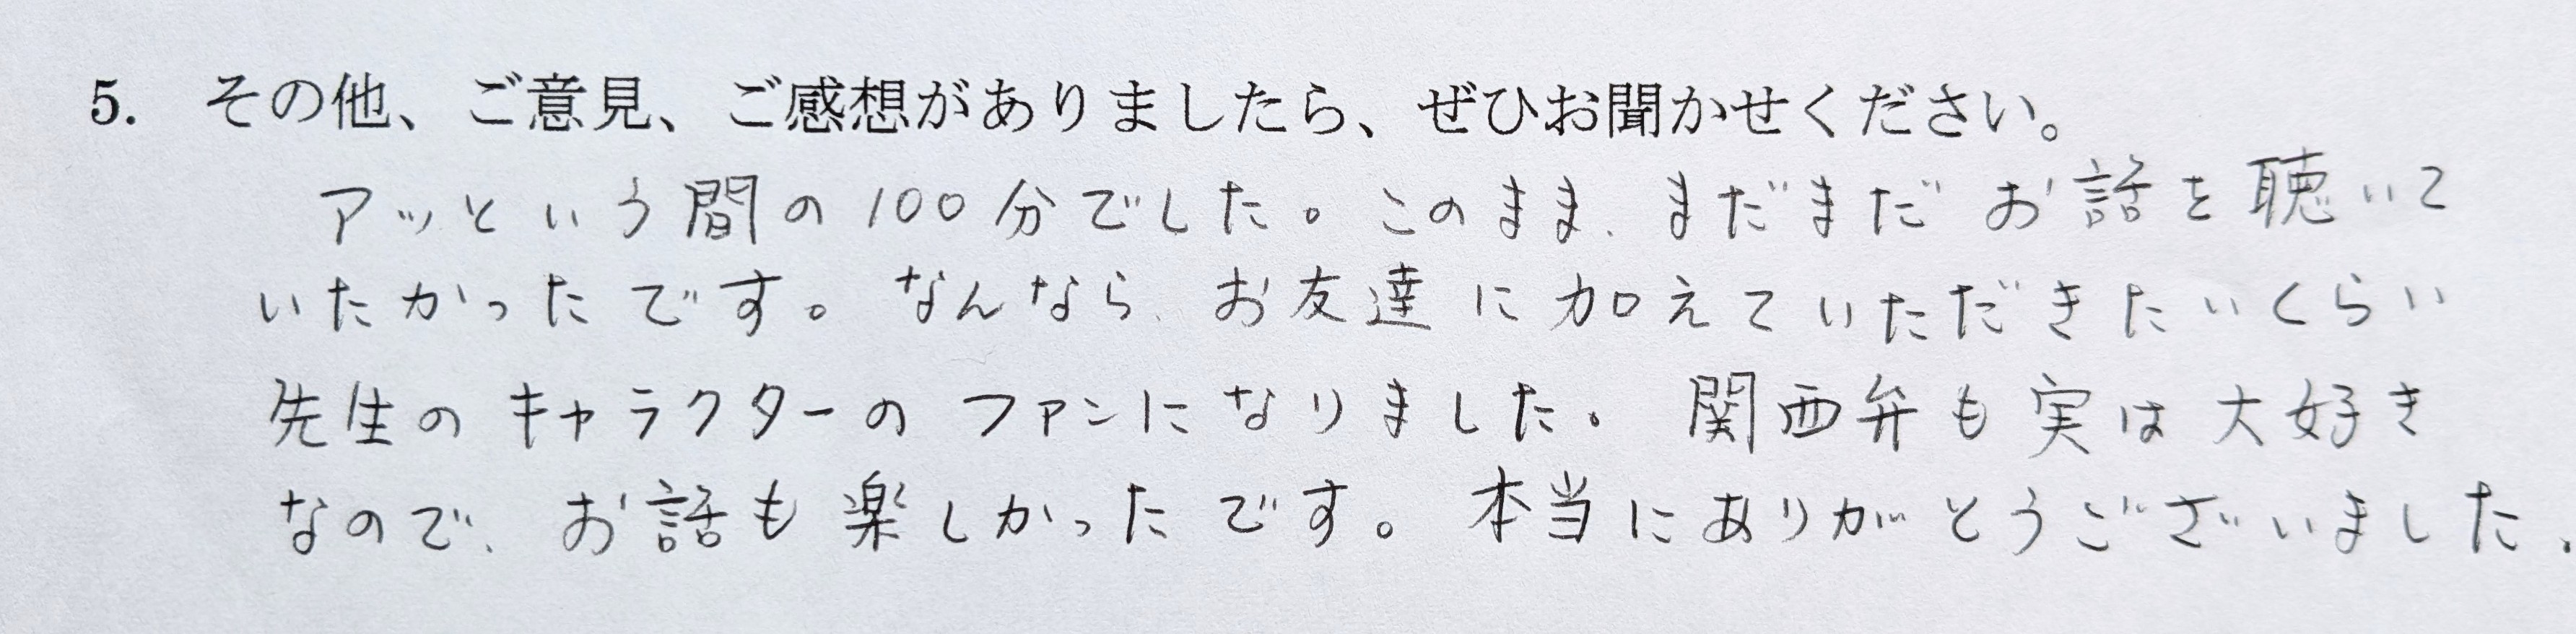 5. その他、ご意見、ご感想がありましたら、ぜひお聞かせください。
アッという間の100分でした。このまま、まだまだお話を聴いて
いたかったです。なんなら、お友達に加えていただきたいくらい
先生のキャラクターのファンになりました。関西弁も実は大好き
なので、お話も楽しかったです。本当にありがとうございました。